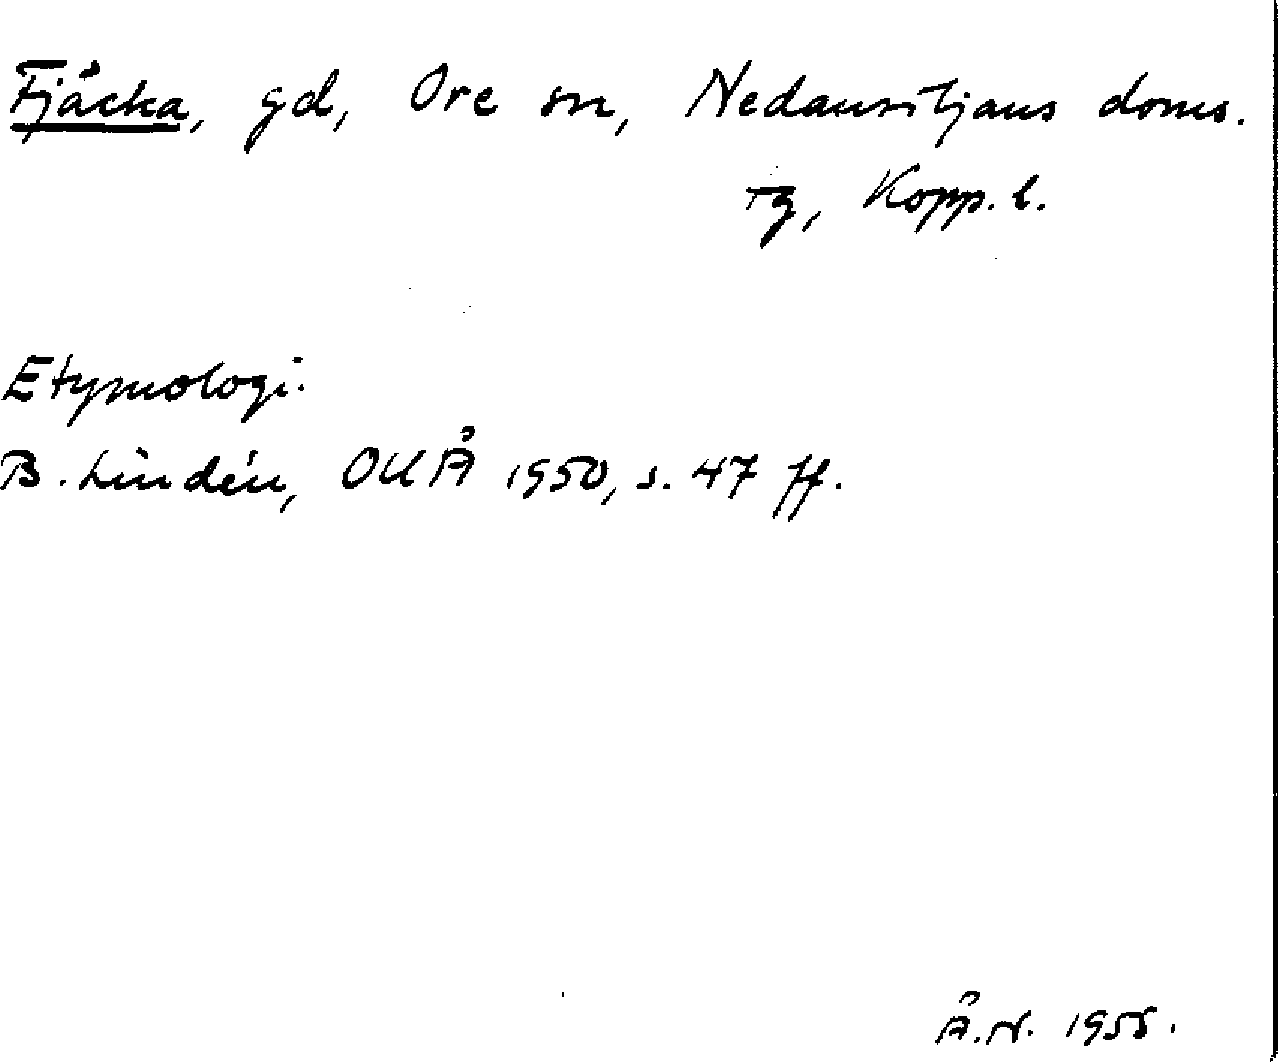 Fjåcka, gd, Ore sn, Nedansiljans doms.
tg, Kopp. l.
Etymologi.
B. Lindén, OUÅ 1950, s. 47 ff.
Å.N. 1955.